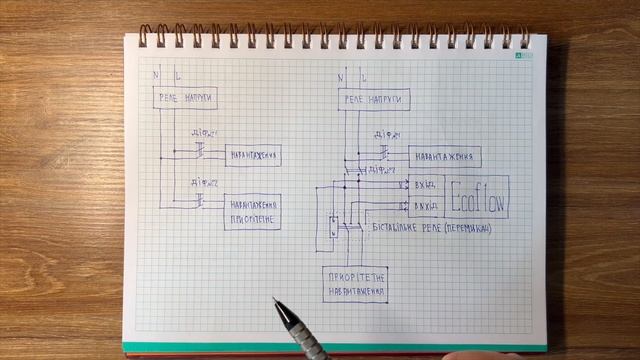 N L
РЕЛЕ НАПРУГИ
ДІФ№1
НАВАНТАЖЕННЯ
ДІФ№2
НАВАНТАЖЕННЯ
ПРИОРІТЕТНЕ
N L
РЕЛЕ НАПРУГИ
ДІФ№1
НАВАНТАЖЕННЯ
ДІФ№2
ВХІД
Ecoflow
БІСТАБІЛЬНЕ РЕЛЕ (ПЕРЕМИКАЧ)
ПРИОРІТЕТНЕ
НАВАНТАЖЕННЯ